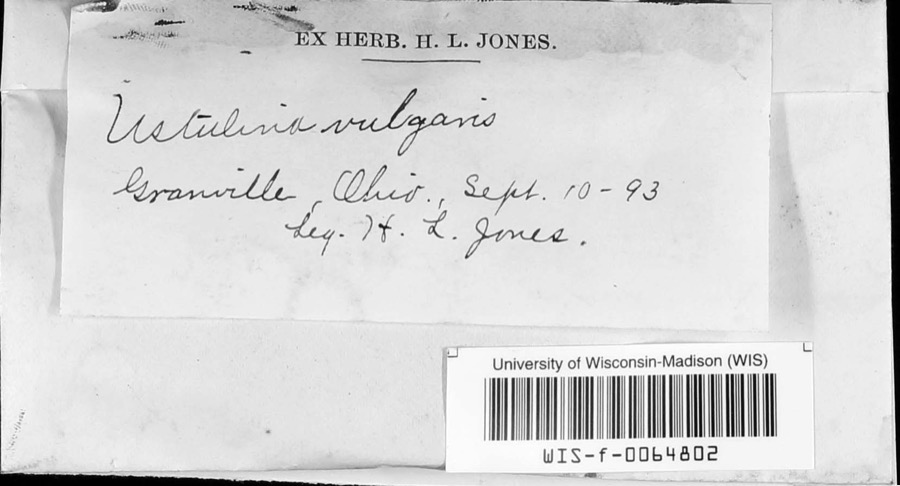 EX HERB. H. L. JONES.
Ustulina vulgaris
Granville, Ohio., Sept. 10-93
Leg. H. L. Jones.
University of Wisconsin-Madison (WIS)
WIS-f-0064802